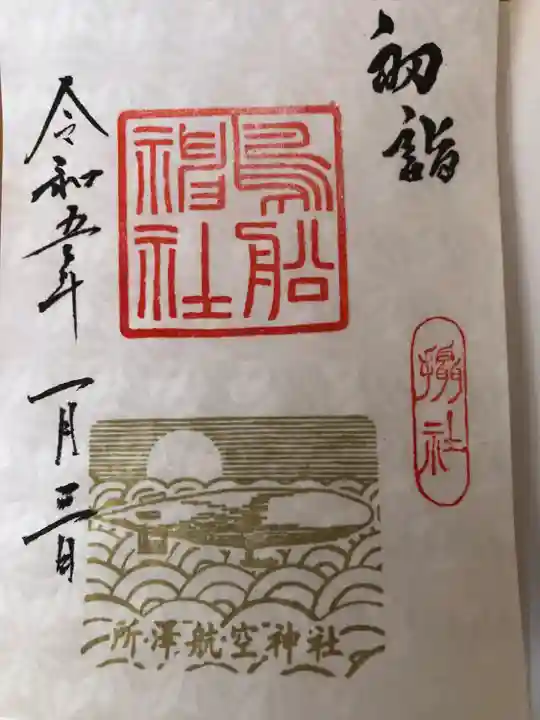 初詣
摂社
鳥船
神社
所澤航空神社
令和五年 一月三日